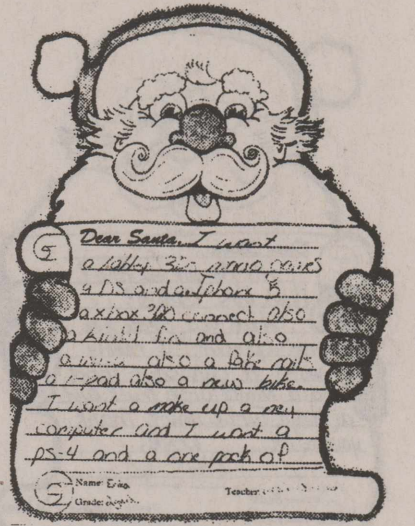 Dear Santa, I want
a
a DS and a Iphone 5
a xbox 360 connect also
a and also
a also a fake nails
a i-pad also a new bike.
I want a make up a new
computer and I want a
ps-4 and a one pack of
Name:
Grade: Teacher: